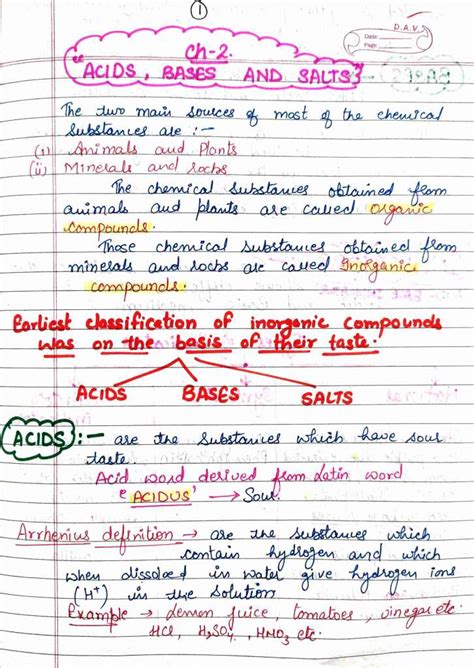 1
D.A.V.
Date
Page
Ch-2.
"ACIDS, BASES AND SALTS"
The two main sources of most of the chemical
substances are :-
(i) Animals and Plants
(ii) Minerals and rocks
The chemical substances obtained from
animals and plants are called organic
compounds.
Those chemical substances obtained from
minerals and rocks are called Inorganic
compounds.
Earliest classification of inorganic compounds
was on the basis of their taste.
ACIDS BASES SALTS
ACIDS :- are the substances which have sour
taste
Acid word derived from Latin word
'ACIDUS' → Sour.
Arrhenius definition → are the substances which
contain hydrogen and which
when dissolved in water give hydrogen ions
(H+) in the solution
Example → Lemon juice, tomatoes, vinegar etc.
HCl, H2SO4, HNO3 etc.